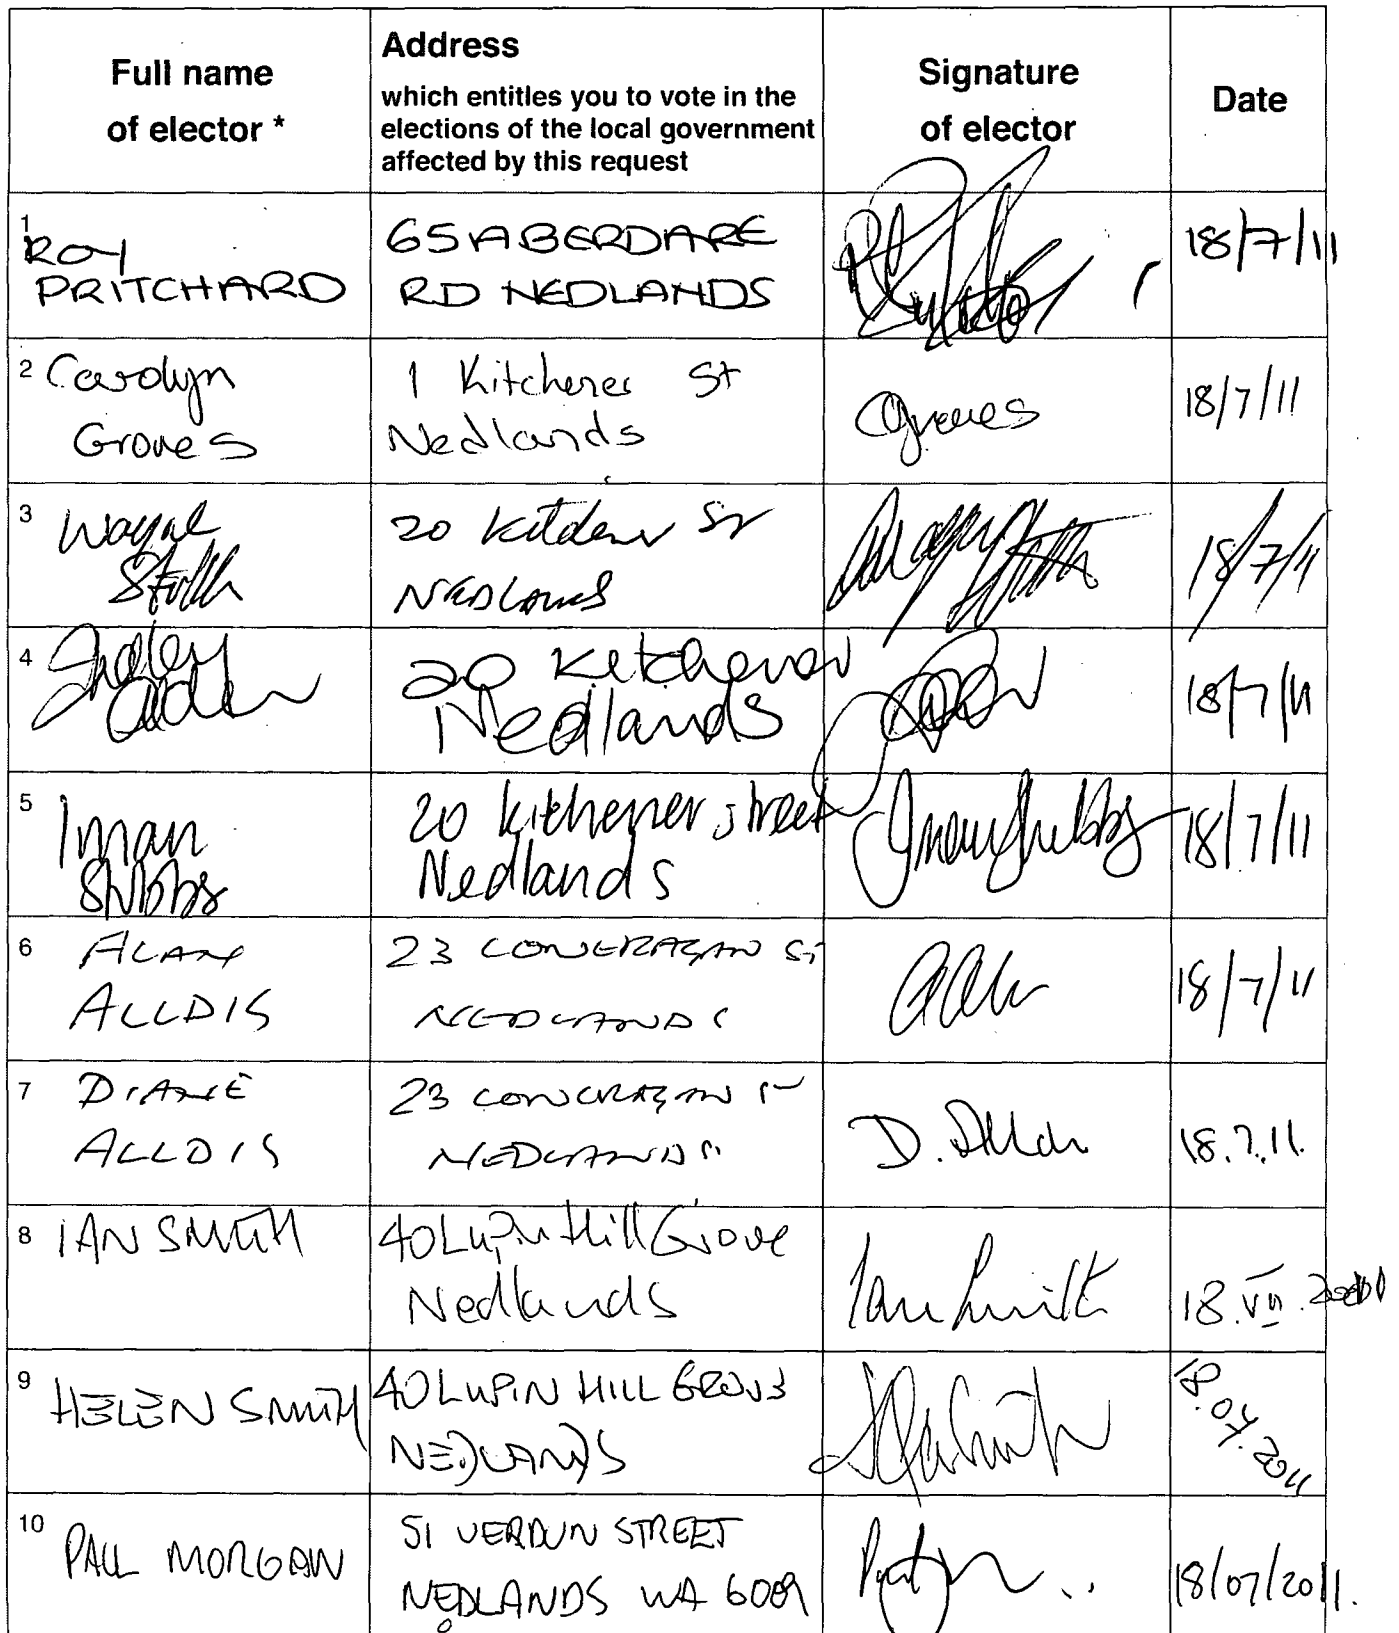 Full name
of elector *
Address
which entitles you to vote in the
elections of the local government
affected by this request
Signature
of elector
Date
1
ROY
PRITCHARD
65 ABERDARE
RD NEDLANDS
18/7/11
2 Carolyn
Groves
1 Kitchener St
Nedlands
Cgroves
18/7/11
3 Wayne
20 Kitchener St
NEDLANDS
18/7/11
4
20 Kitchener
Nedlands
18/7/11
5 Iman
Stubbs
20 Kitchener street
Nedlands
18/7/11
6 ALAN
ALLDIS
23 St
NEDLANDS
18/7/11
7 DIANE
ALLDIS
23
NEDLANDS
D.
18.7.11.
8 IAN SMITH
40 Lupin Hill Grove
Nedlands
Ian Smith
18.VII.
9
HELEN SMITH
40 LUPIN HILL GROVE
NEDLANDS
18.07.2011
10
PAUL MORGAN
51 VERDUN STREET
NEDLANDS WA 6009
18/07/2011.